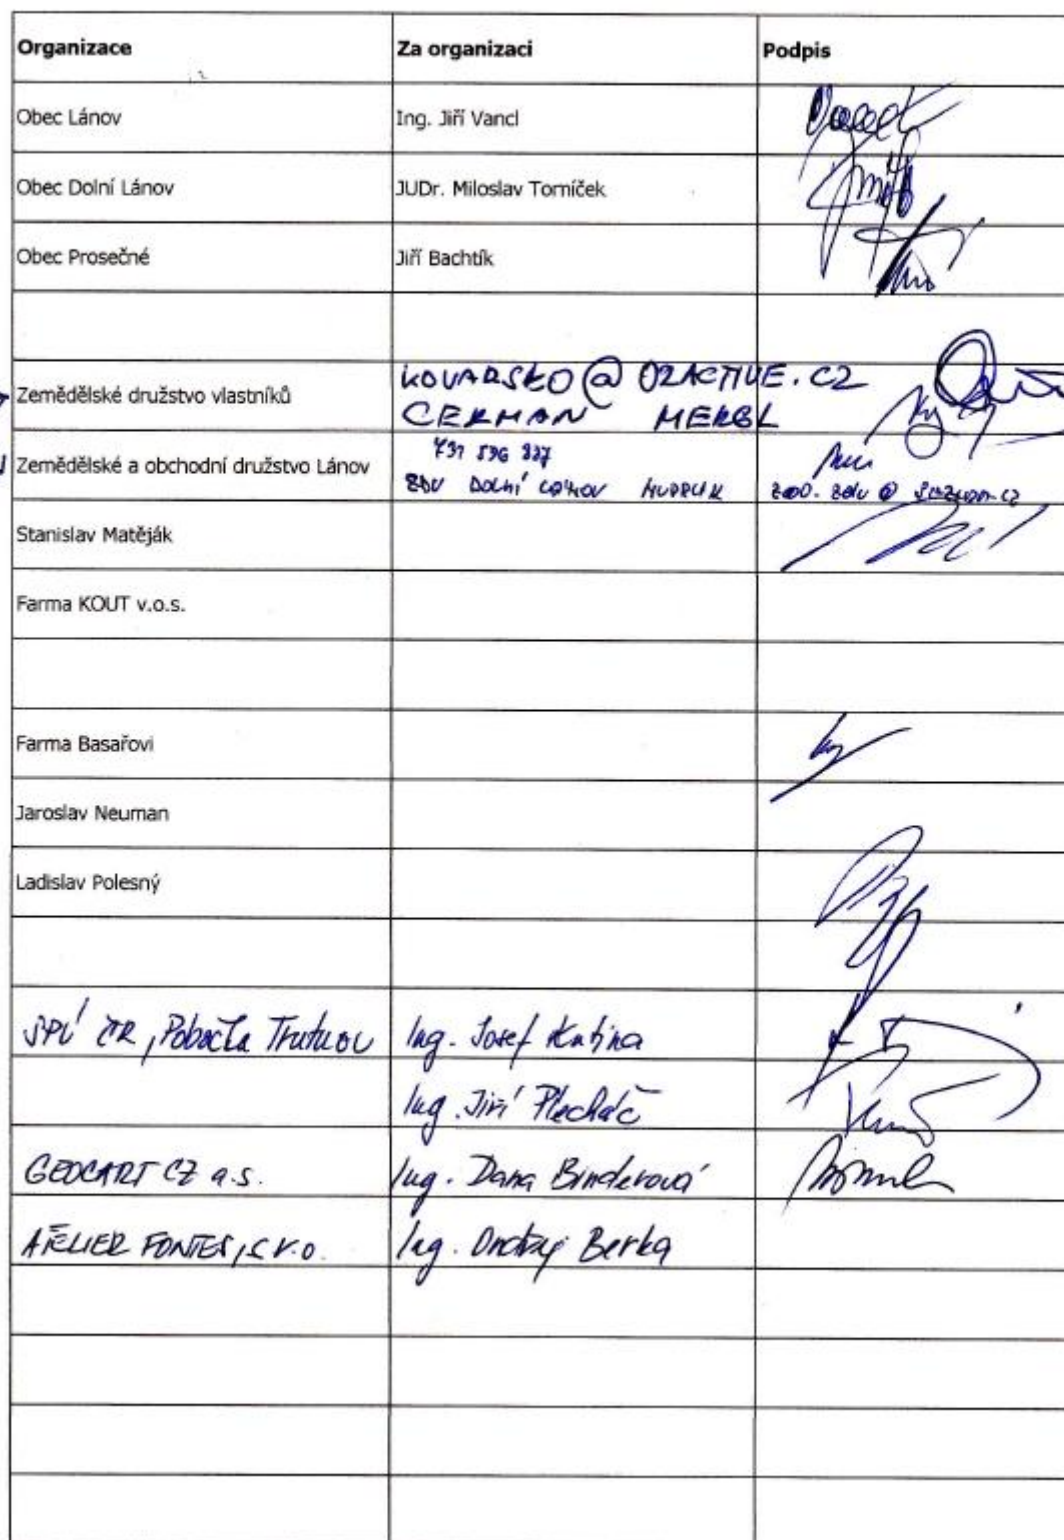 Organizace Za organizaci Podpis
Obec Lánov Ing. Jiří Vancl
Obec Dolní Lánov JUDr. Miloslav Tomíček
Obec Prosečné Jiří Bachtík
Zemědělské družstvo vlastníků KOVARSKO@O2ACTIVE.CZ
CERMAN MERGL
Zemědělské a obchodní družstvo Lánov 731 536 827
ZDV DOLNÍ LÁNOV
Stanislav Matěják
Farma KOUT v.o.s.
Farma Basařovi
Jaroslav Neuman
Ladislav Polesný
SPÚ ČR, Pobočka Trutnov Ing. Josef Kutina
Ing. Jiří Plecháč
GEOCART CZ a.s. Ing. Dana Binderová
ATELIER FONTES, s.r.o. Ing. Ondřej Berka